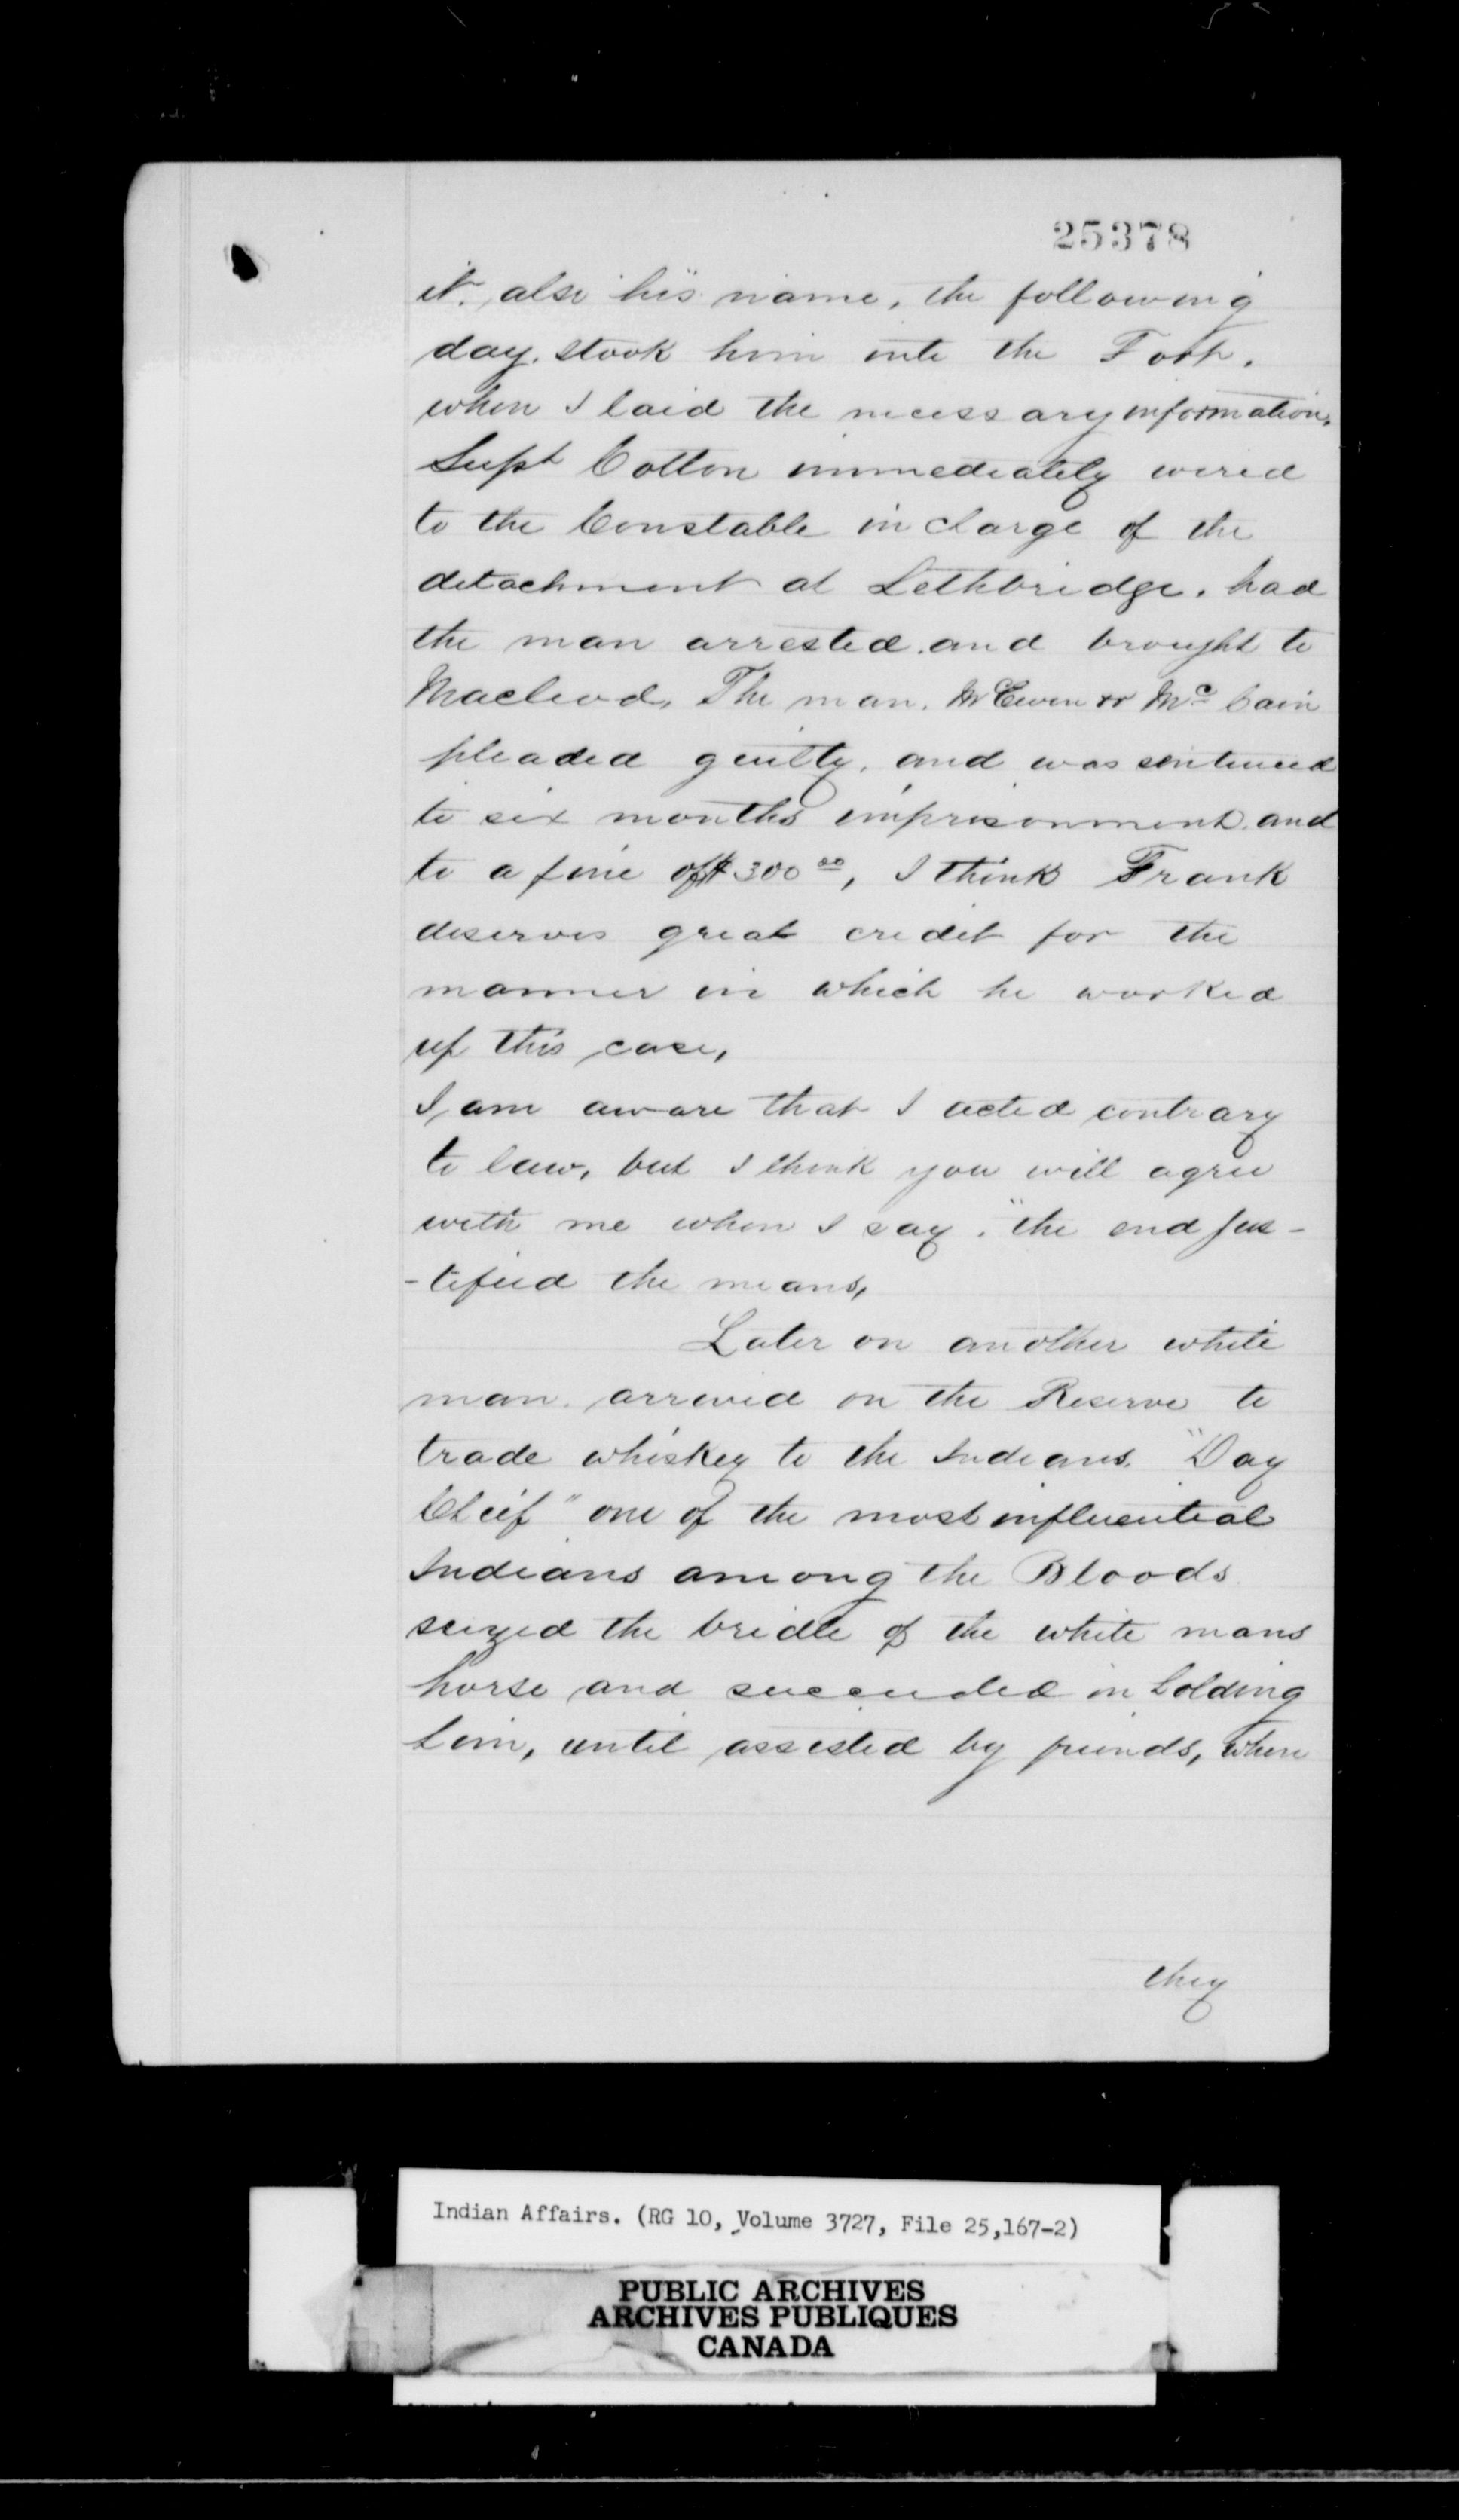 25378
it. also his name, the following
day. I took him into the Fort.
when I laid the necessary information,
Supt Cotton immediately wired
to the Constable in charge of the
detachment at Lethbridge. had
the man arrested. and brought to
Macleod, The man. McEwen or Mc Cain
pleaded guilty, and was sentenced
to six months imprisonment. and
to a fine of $300 00, I think Frank
deserves great credit for the
manner in which he worked
up this case,
I am aware that I acted contrary
to law, but I think you will agree
with me when I say. "the end jus-
-tified the means,
Later on another white
man. arrived on the Reserve to
trade whiskey to the Indians. "Day
Chief" one of the most influential
Indians among the Bloods
seized the bridle of the white mans
horse and succeeded in holding
him, until assisted by friends, when
they
Indian Affairs. (RG 10, Volume 3727, File 25,167-2)
PUBLIC ARCHIVES
ARCHIVES PUBLIQUES
CANADA